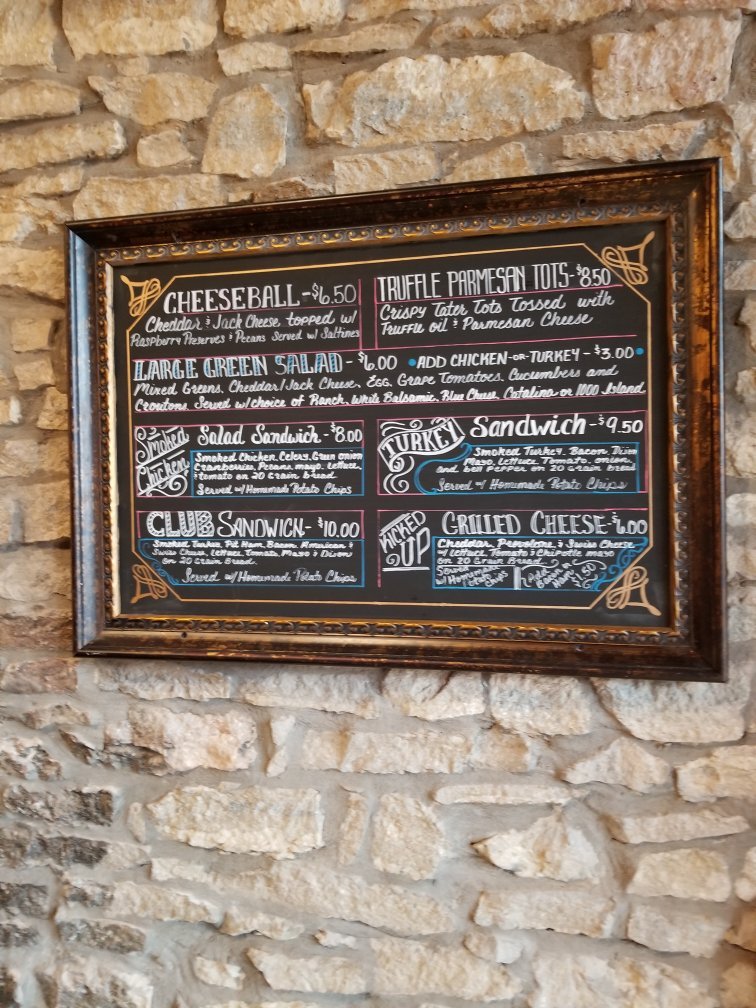 CHEESEBALL - $6.50
Cheddar & Jack Cheese topped w/
Raspberry Preserves & Pecans Served w/ Saltines
TRUFFLE PARMESAN TOTS - $8.50
Crispy Tater Tots Tossed with
Truffle oil & Parmesan Cheese
LARGE GREEN SALAD - $6.00 • ADD CHICKEN -OR- TURKEY - $3.00 •
Mixed Greens, Cheddar/Jack Cheese, Egg, Grape Tomatoes, Cucumbers and
Croutons Served w/choice of Ranch, White Balsamic, Blue Cheese, Catalina or 1000 Island
Smoked Chicken Salad Sandwich - $8.00
Smoked Chicken, Celery, Green onion
Cranberries, Pecans, mayo, Lettuce,
& tomato on 20 Grain bread
Served w/ Homemade Potato Chips
TURKEY Sandwich - $9.50
Smoked Turkey, Bacon, Dijon
Mayo, Lettuce, Tomato, onion
and bell Pepper on 20 Grain bread
Served w/ Homemade Potato Chips
CLUB SANDWICH - $10.00
Smoked Turkey, Pit Ham, Bacon, American &
Swiss Cheese, Lettuce, Tomato, Mayo & Dijon
on 20 Grain Bread.
Served w/ Homemade Potato Chips
KICKED UP GRILLED CHEESE - $6.00
Cheddar, Provolone & Swiss Cheese
w/ Lettuce, Tomato & Chipotle mayo
on 20 Grain Bread
Served w/ Homemade Potato Chips
Add Bacon or Ham $1.50